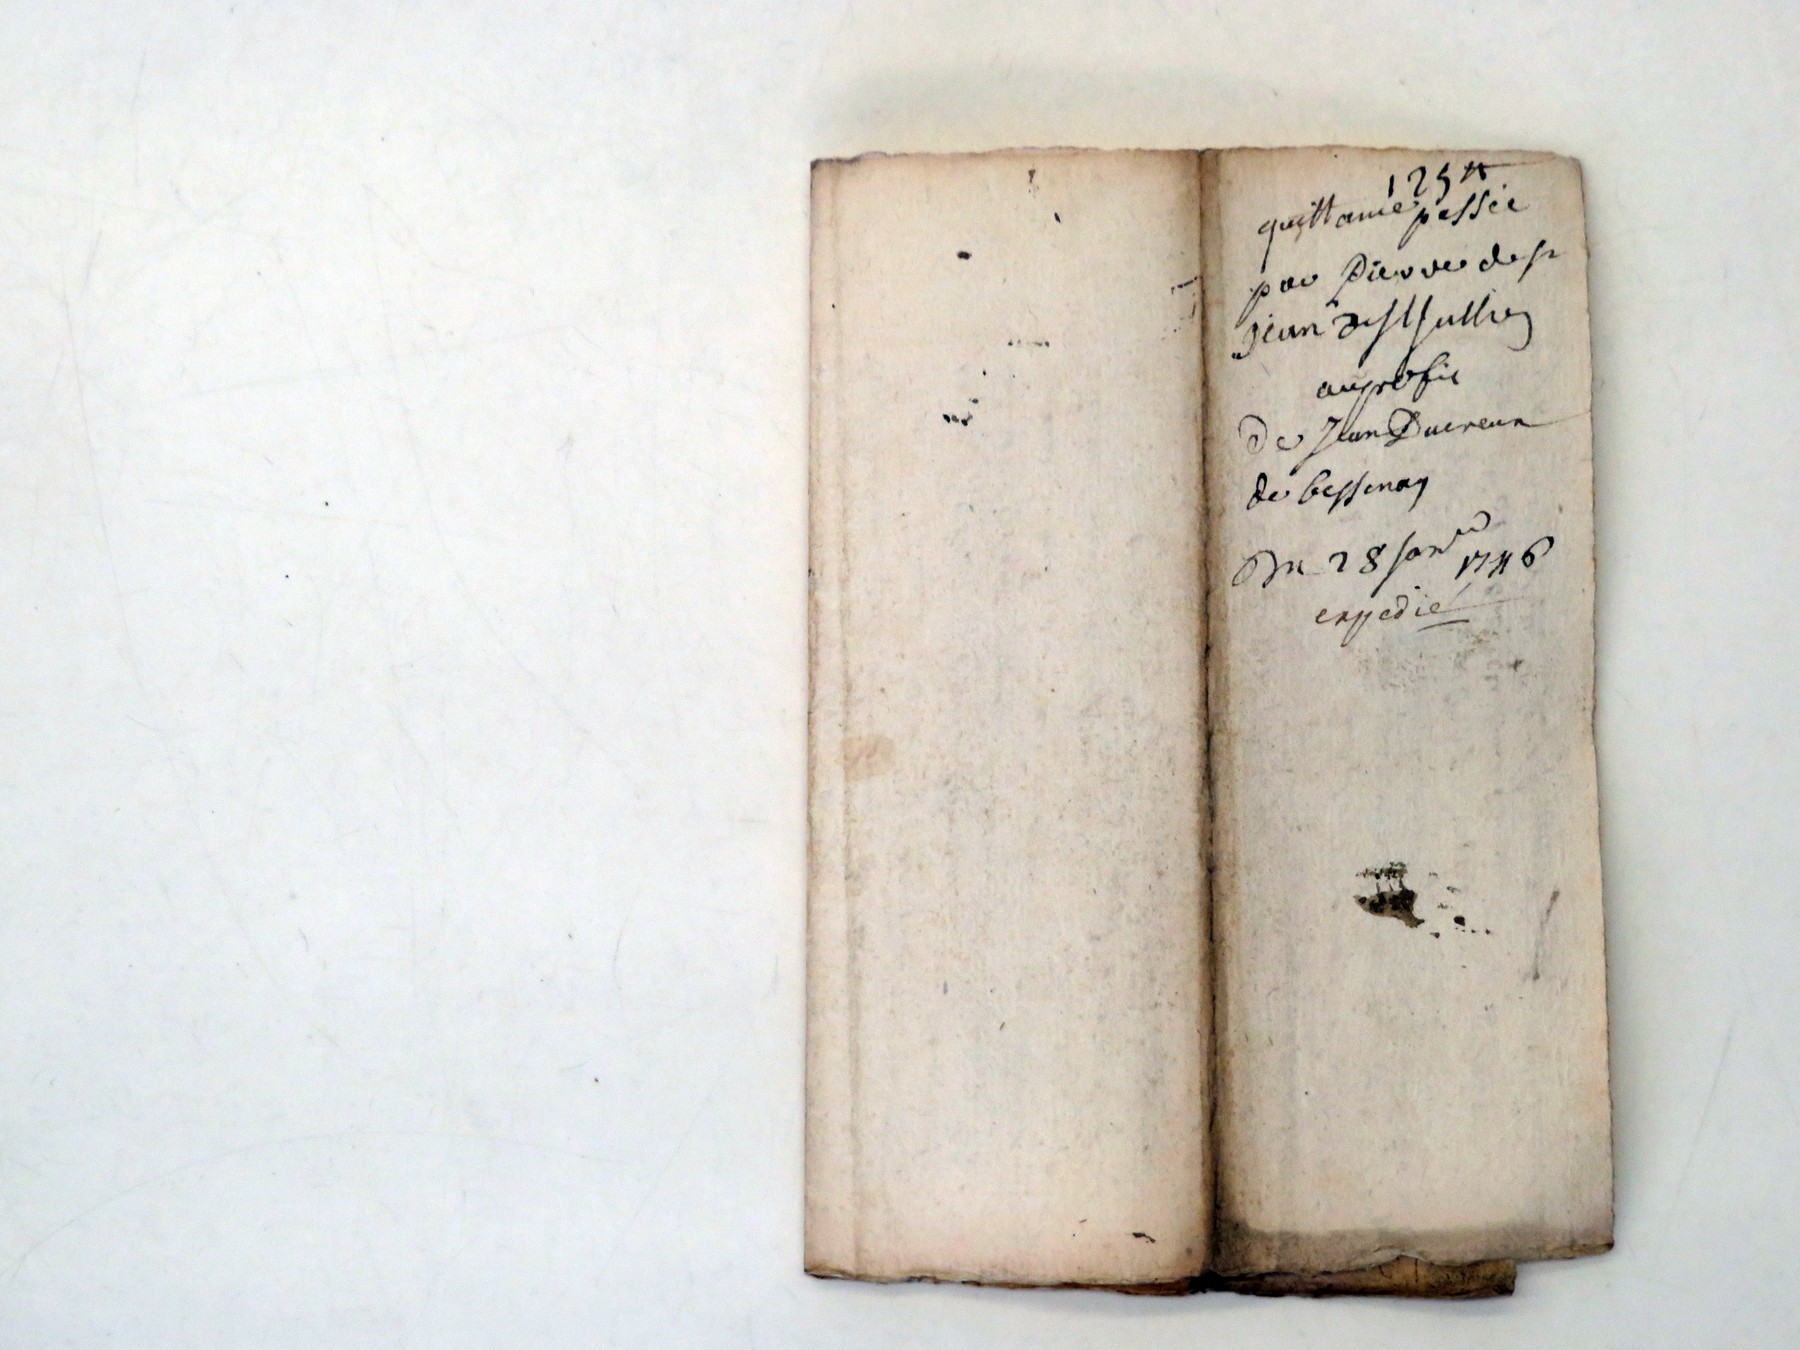 125 ₶
quittance passée
par Pierre de st
jean de st Jullien
au profit
de Jean Ducreux
de bessenay
Du 28 janer 1746
expedié